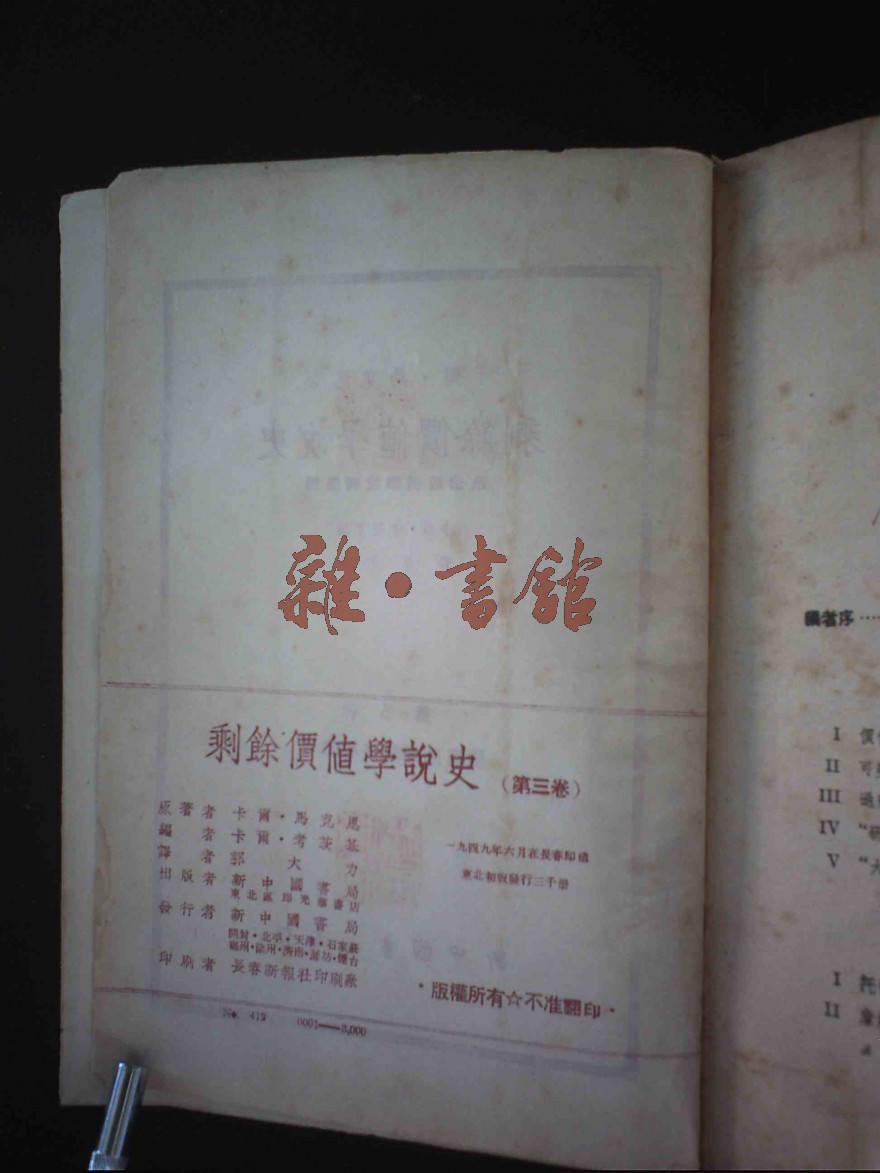 雜•書館
剩餘價值學說史 (第三卷)
原著者 卡爾•馬克思
編者 卡爾•考茨基
譯者 郭大力
出版者 新中國書局
東北區印光華書店
發行者 新中國書局
開封•北平•天津•石家莊
鄭州•徐州•濟南•濰坊•煙台
印刷者 長春新報社印刷廠
一九四九年六月在長春印造
東北初版發行三千册
•版權所有☆不准翻印•
No. 412 0001——3,000
編者序……
I 價
II 可
III 過
IV
V “大
I 托
II